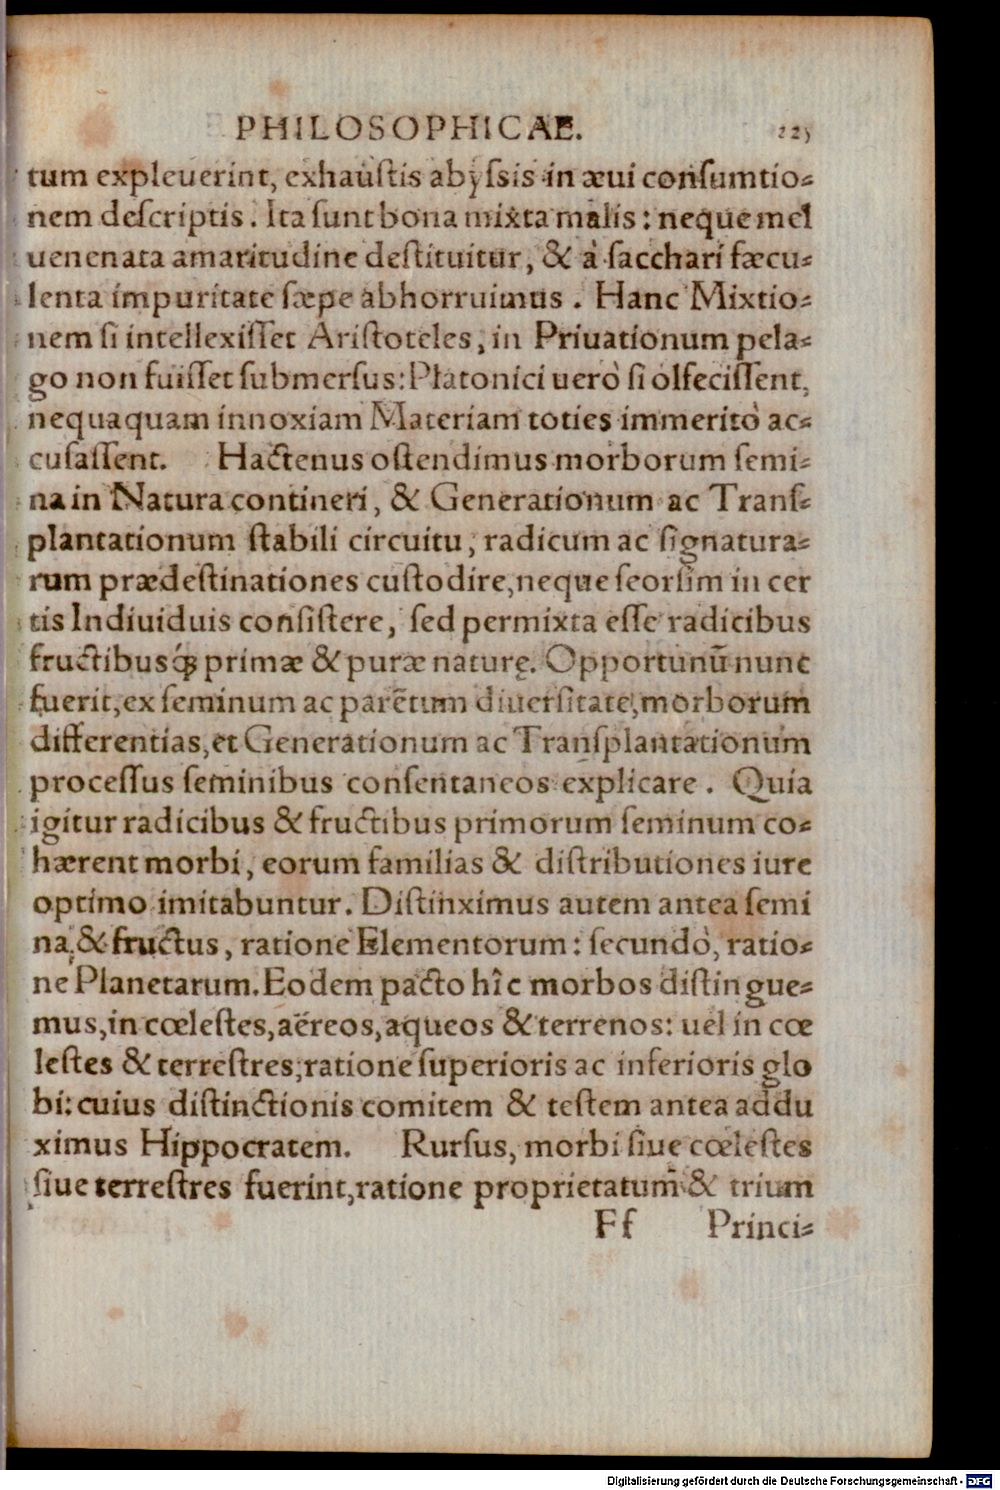 PHILOSOPHICAE. 225
tum expleuerint, exhaustis abyſsis in æui conſumtio⸗
nem deſcriptis. Ita ſunt bona mixta malis: neque mel
uenenata amaritudine deſtituitur, & à ſacchari fæcu⸗
lenta impuritate ſæpe abhorruimus. Hanc Mixtio⸗
nem ſi intellexiſſet Ariſtoteles, in Priuationum pela⸗
go non fuiſſet ſubmerſus: Platonici uerò ſi olfeciſſent,
nequaquam innoxiam Materiam toties immeritò ac⸗
cuſaſſent. Hactenus oſtendimus morborum ſemi⸗
na in Natura contineri, & Generationum ac Tranſ⸗
plantationum ſtabili circuitu, radicum ac ſignatura⸗
rum prædeſtinationes cuſtodire, neque ſeorſim in cer
tis Indiuiduis conſiſtere, ſed permixta eſſe radicibus
fructibusq́ꝫ primæ & puræ naturę. Opportunū nunc
fuerit, ex ſeminum ac parētum diuerſitate, morborum
differentias, et Generationum ac Tranſplantationum
proceſſus ſeminibus conſentaneos explicare. Quia
igitur radicibus & fructibus primorum ſeminum co⸗
hærent morbi, eorum familias & diſtributiones iure
optimo imitabuntur. Diſtinximus autem antea ſemi
na, & fructus, ratione Elementorum: ſecundò, ratio⸗
ne Planetarum. Eodem pacto hîc morbos diſtingue⸗
mus, in cœleſtes, aëreos, aqueos & terrenos: uel in cœ
leſtes & terreſtres, ratione ſuperioris ac inferioris glo
bi: cuius diſtinctionis comitem & teſtem antea addu
ximus Hippocratem. Rurſus, morbi ſiue cœleſtes
ſiue terreſtres fuerint, ratione proprietatum & trium
Ff Princi⸗
Digitalisierung gefördert durch die Deutsche Forschungsgemeinschaft - DFG